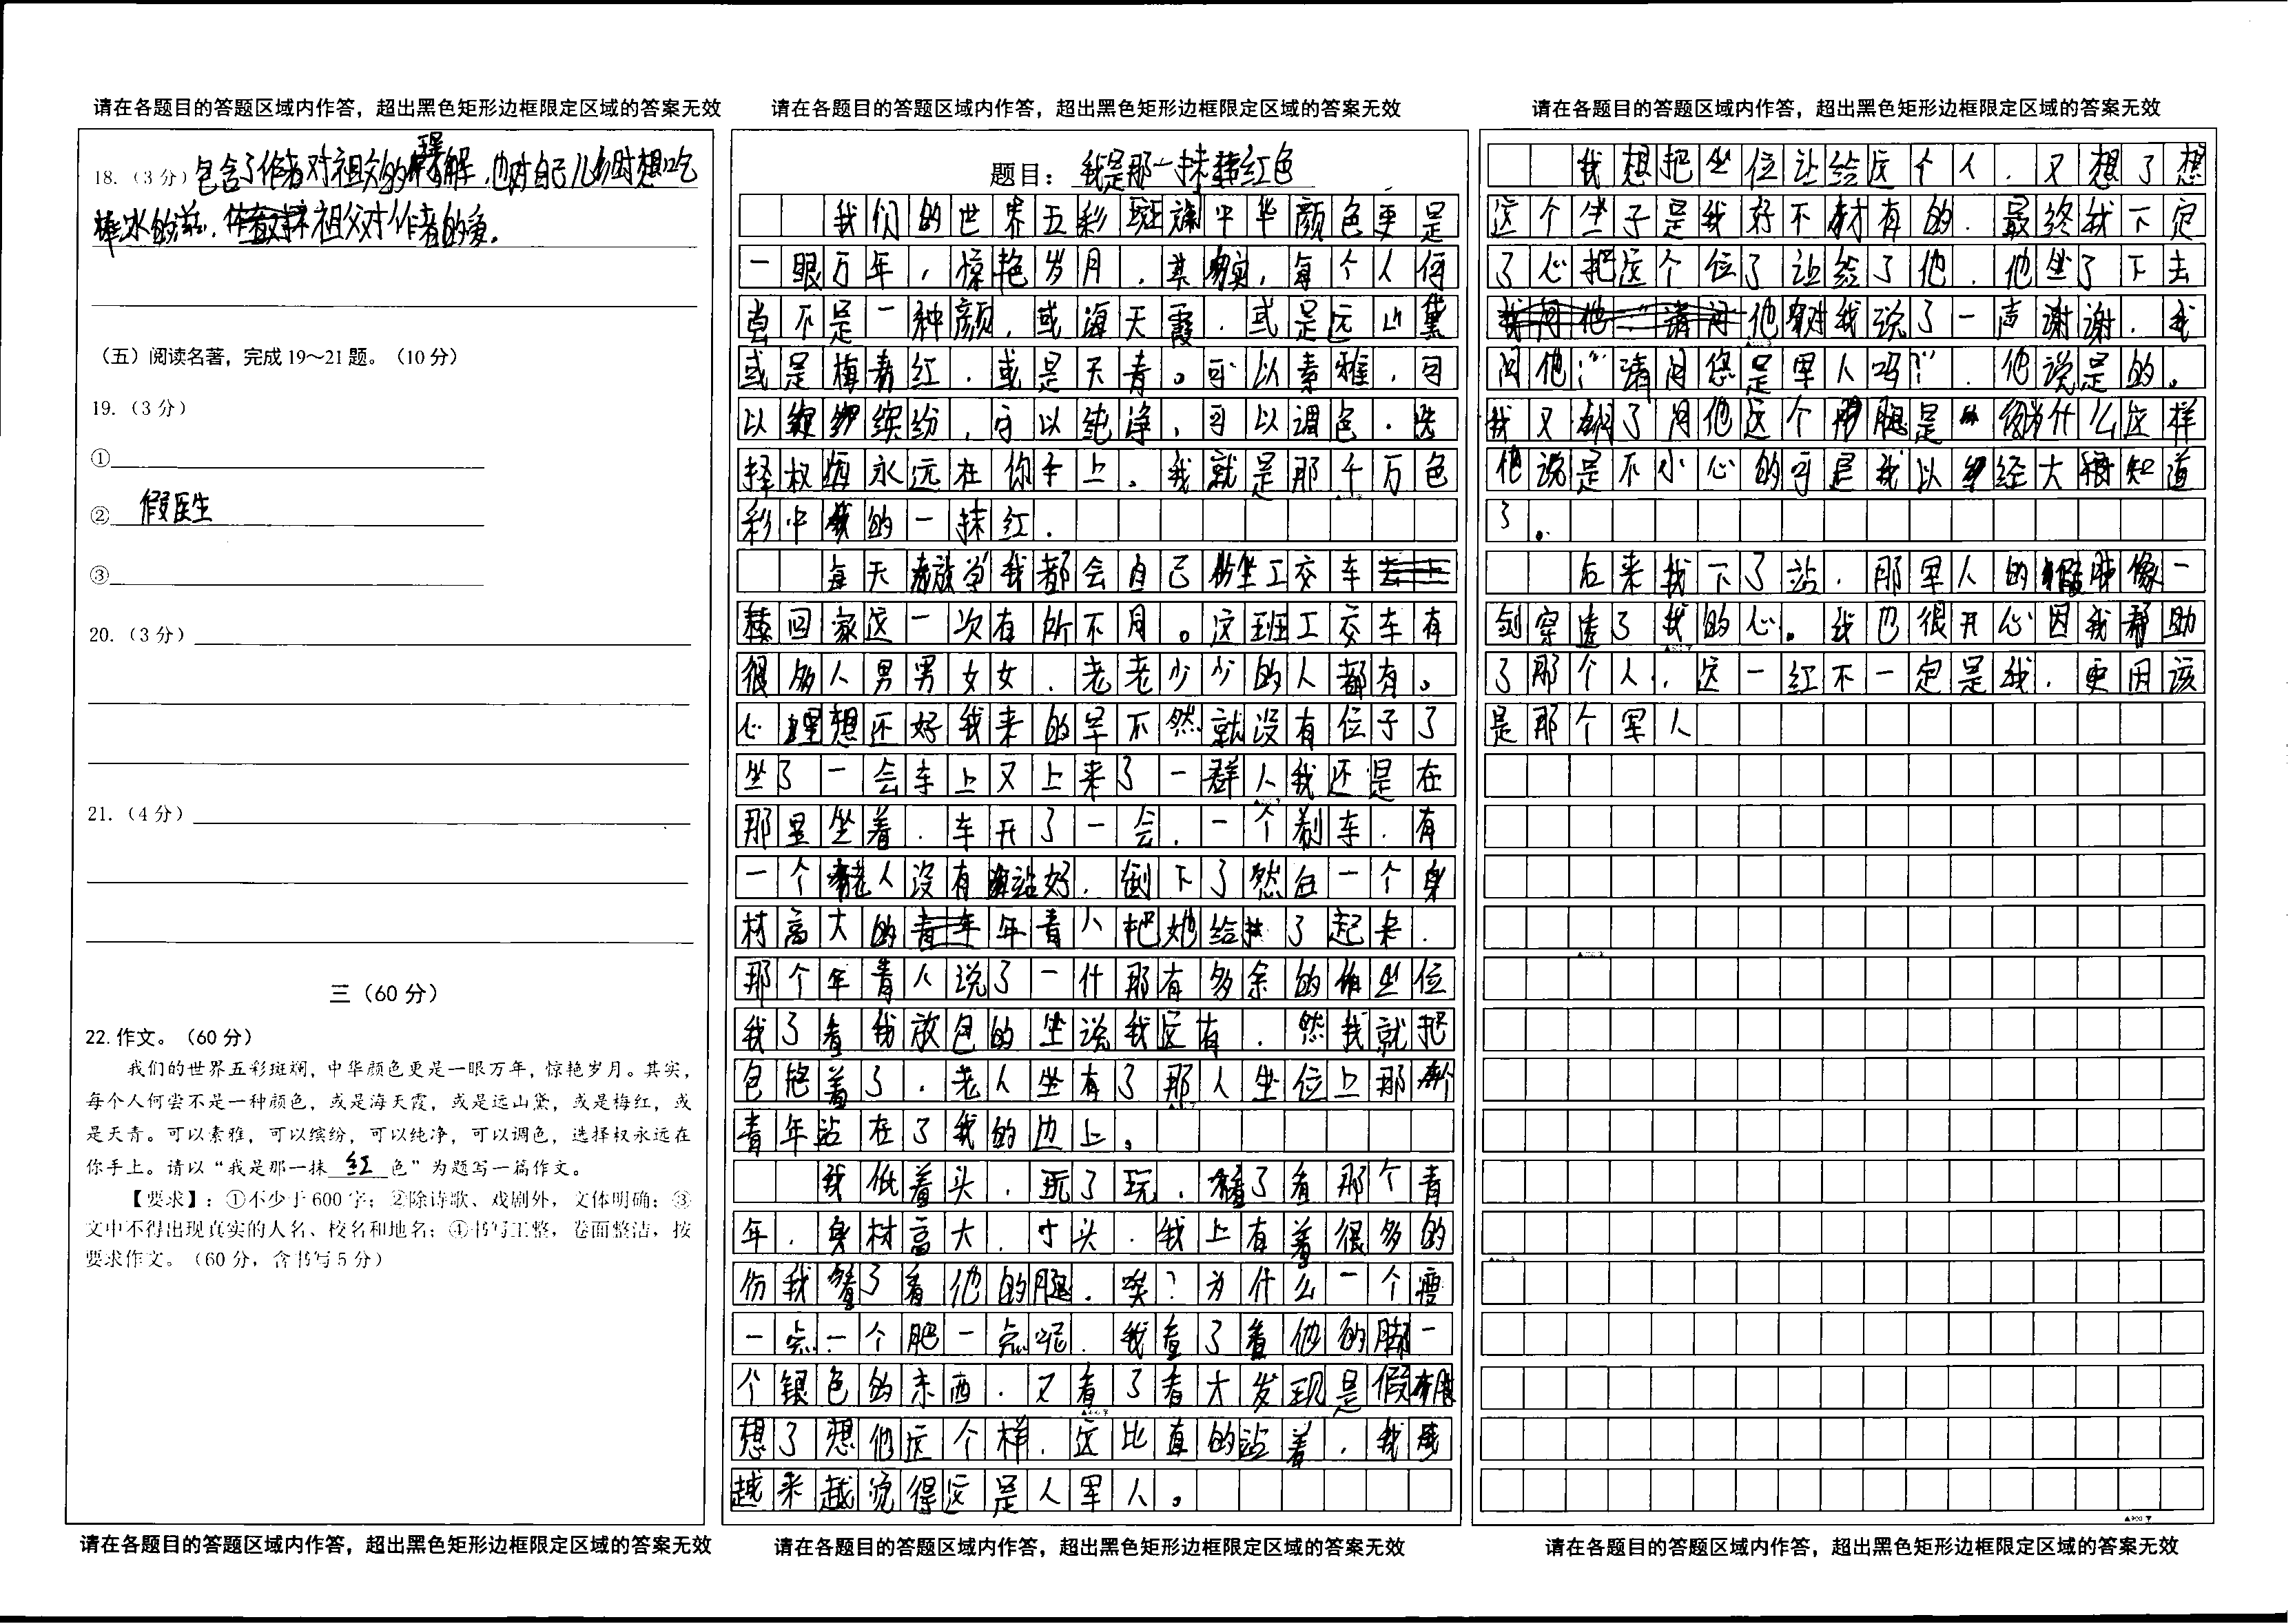 请在各题目的答题区域内作答，超出黑色矩形边框限定区域的答案无效
18.（3分）包含了作者对祖父的理解，也有自己儿时想吃
棒冰的，祖父对作者的爱。
（五）阅读名著，完成19～21题。（10分）
19.（3分）
①
② 假医生
③
20.（3分）
21.（4分）
三（60分）
22.作文。（60分）
我们的世界五彩斑斓，中华颜色更是一眼万年，惊艳岁月。其实，
每个人何尝不是一种颜色，或是海天霞，或是远山黛，或是梅红，或
是天青。可以素雅，可以缤纷，可以纯净，可以调色，选择权永远在
你手上。请以“我是那一抹 红 色”为题写一篇作文。
【要求】：①不少于600字；②除诗歌、戏剧外，文体明确；③
文中不得出现真实的人名、校名和地名；④书写工整，卷面整洁，按
要求作文。（60分，含书写5分）
请在各题目的答题区域内作答，超出黑色矩形边框限定区域的答案无效
请在各题目的答题区域内作答，超出黑色矩形边框限定区域的答案无效
题目：我是那一抹红色
我们的世界五彩斑斓中华颜色更是
一眼万年，惊艳岁月．其实，每个人何
尝不是一种颜，或海天霞．或是远山黛
或是梅红．或是天青。可以素雅．可
以缤纷，可以纯净，可以调色．选
择权永远在你手上。我就是那千万色
彩中的一抹红．
每天放学我都会自己坐工交车
回家这一次有所不同。这班工交车有
很多人男男女女．老老少少的人都有。
心里想还好我来的早不然就没有位子了
坐了一会车上又上来了一群人我还是在
那里坐着．车开了一会．一个刹车．有
一个老人没有站好．倒下了然后一个身
材高大的年青人把她给扶了起来．
那个年青人说了一什那有多余的坐位
我了看我放包的坐说我这有．然我就把
包抱着了．老人坐有了那人坐位上那个
青年站在了我的边上。
我低着头．玩了玩．看了看那个青
年．身材高大．寸头．我上有着很多的
伤我看了看他的腿．咦？为什么一个瘦
一点一个肥一点呢．我看了看他的脚一
个银色的东西．又看了看才发现是假腿
想了想他这个样．这比直的站着．我
越来越觉得这是人军人。
请在各题目的答题区域内作答，超出黑色矩形边框限定区域的答案无效
请在各题目的答题区域内作答，超出黑色矩形边框限定区域的答案无效
我想把坐位让给这个人．又想了想
这个坐子是我好不才有的．最终我下定
了心把这个位了让给了他．他坐了下去
他对我说了一声谢谢．我
问他：“请问您是军人吗？”．他说是的。
我又问了问他这个腿是为什么这样
他说是不小心的可是我以经大概知道
了。
后来我下了站．那军人的假腿像一
剑穿透了我的心。我也很开心因我帮助
了那个人．这一红不一定是我．更因该
是那个军人
请在各题目的答题区域内作答，超出黑色矩形边框限定区域的答案无效